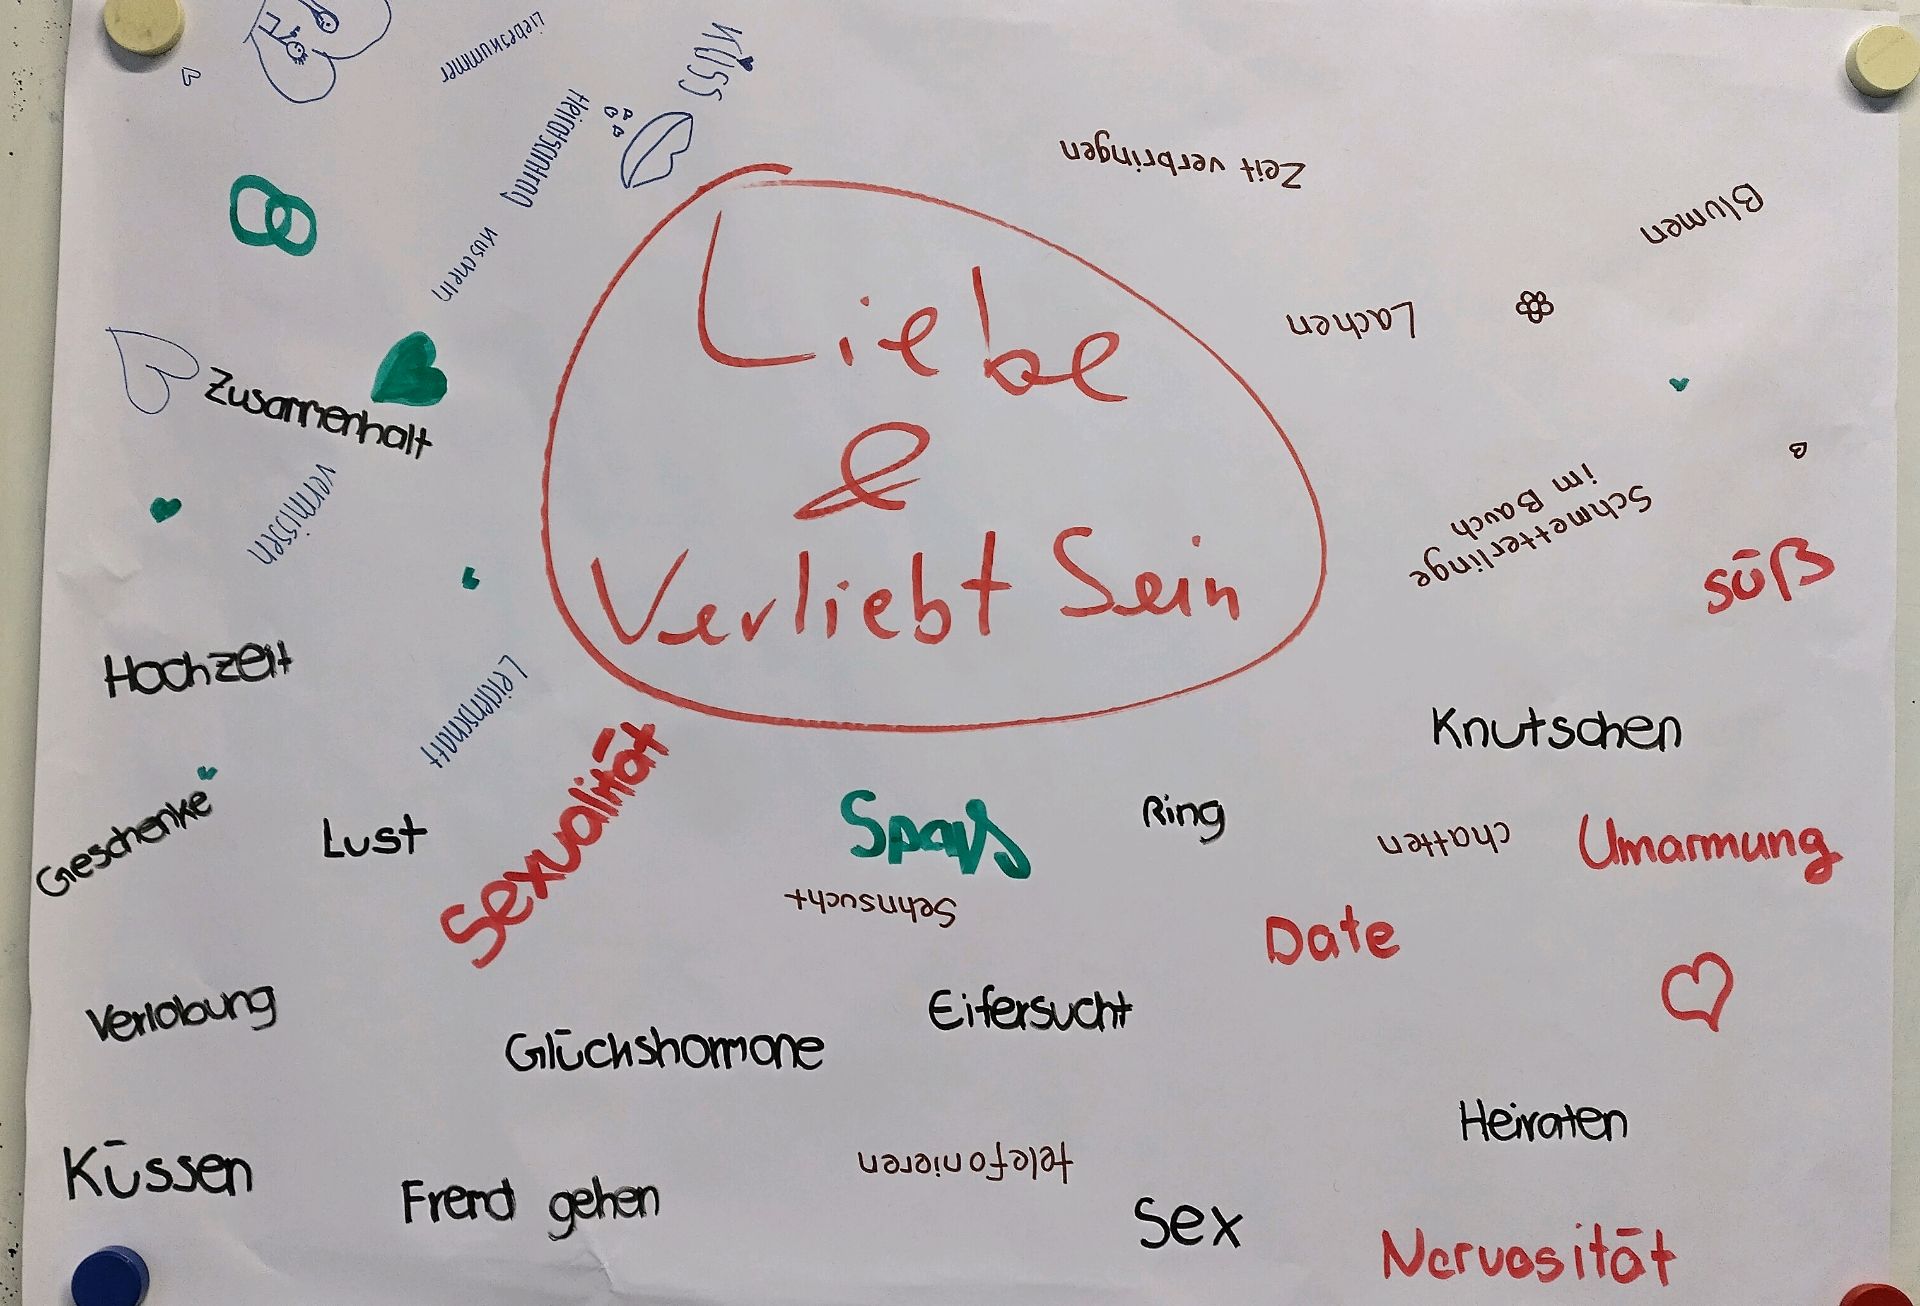 Liebeskummer
Kuss
Heiratsantrag
Zeit verbringen
Blumen
Kuscheln
Lachen
Liebe
&
Verliebt Sein
Zusammenhalt
vermissen
Schmetterlinge
im Bauch
süß
Hochzeit
Leidenschaft
Sexualität
Knutschen
Geschenke
Lust
Spaß
Ring
chatten
Umarmung
Sehnsucht
Date
Verlobung
Glückshormone
Eifersucht
Heiraten
Küssen
Fremd gehen
telefonieren
Sex
Nervosität